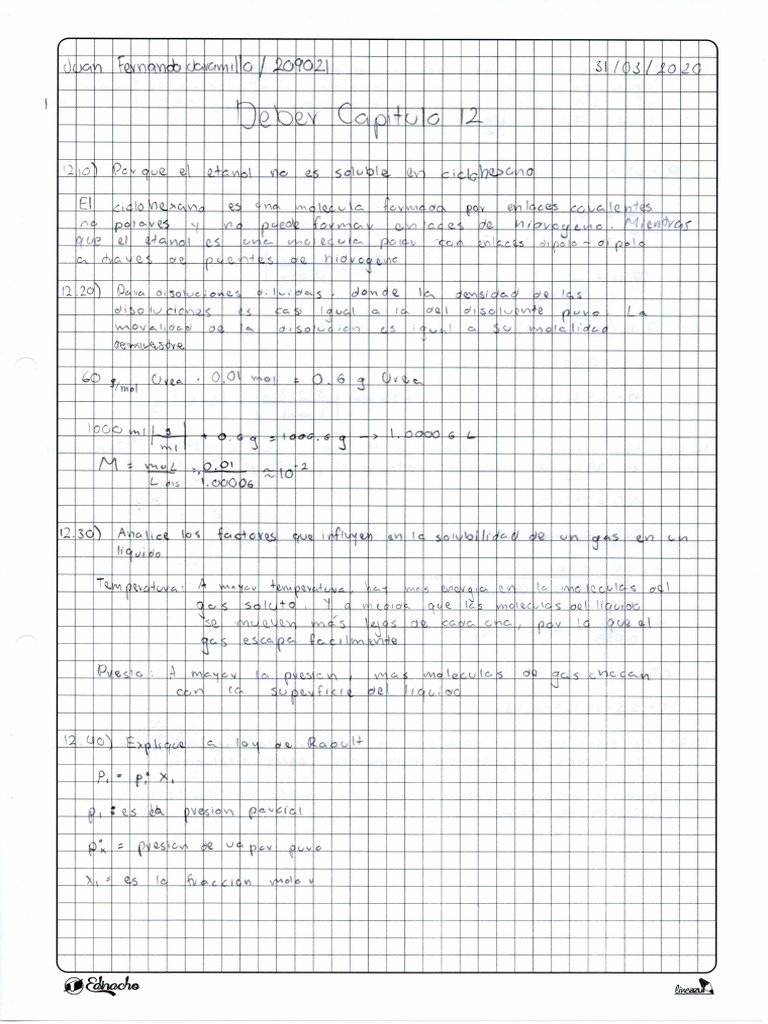 Juan Fernando Jaramillo / 209021 31/03/2020
Deber Capitulo 12
12.10) Por que el etanol no es soluble en ciclohexano
El ciclohexano es una molecula formada por enlaces covalentes
no polares y no puede formar enlaces de hidrogeno. Mientras
que el etanol es una molecula polar con enlaces dipolo-dipolo
a traves de puentes de hidrogeno
12.20) Para disoluciones diluidas, donde la densidad de las
disoluciones es casi igual a la del disolvente puro. La
molaridad de la disolucion es igual a su molalidad
demuestre
60 g/mol Urea · 0,01 mol = 0.6 g Urea
1000 ml | g/ml | + 0.6 g = 1000.6 g → 1.0000 6 L
M = mol / L dis = 0.01 / 1.00006 ≈ 10⁻²
12.30) Analice los factores que influyen en la solubilidad de un gas en un
liquido
Temperatura: A mayor temperatura, hay mas energia en la moleculas del
gas soluto. Y a medida que las moleculas del liquido
se mueven más lejos de cada una, por lo que el
gas escapa facilmente
Presio: A mayor la presion, mas moleculas de gas chocan
con la superficie del liquido
12.40) Explique la ley de Raoult
P₁ = P₁° X₁
P₁ = es la presion parcial
P°x = presion de vapor puro
X₁ = es la fraccion molar
Ednacho
lineazul